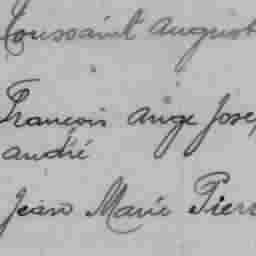 Toussaint August
François Ange Jose
andré
Jean Marie Pierr